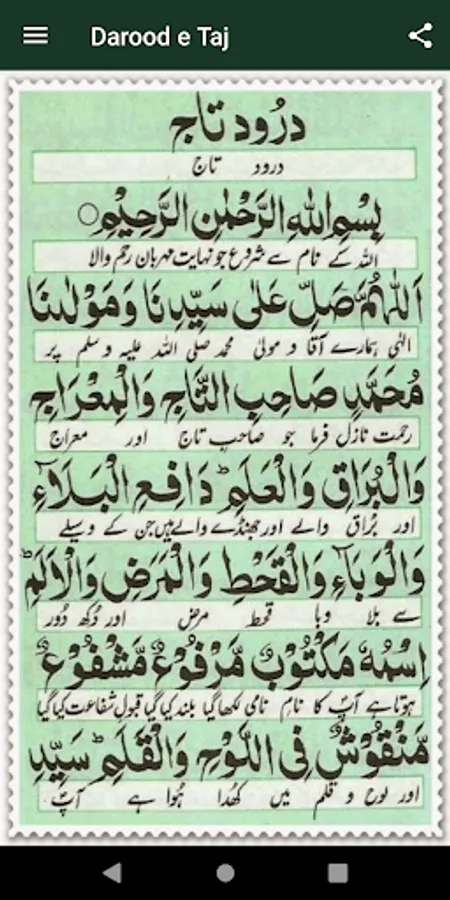 Darood e Taj
درُود تاج
درود تاج
بِسْمِ اللهِ الرَّحْمٰنِ الرَّحِيْمِ
اللہ کے نام سے شروع جو نہایت مہربان رحم والا
اَللّٰهُمَّ صَلِّ عَلٰى سَيِّدِنَا وَمَوْلٰىنَا
الٰہی ہمارے آقا و مولیٰ محمد صلی اللہ علیہ وسلم پر
مُحَمَّدٍ صَاحِبِ التَّاجِ وَالْمِعْرَاجِ
رحمت نازل فرما جو صاحب تاج اور معراج
وَالْبُرَاقِ وَالْعَلَمِ ؕ دَافِعِ الْبَلَآءِ
اور بُراق والے اور جھنڈے والے ہیں جن کے وسیلے
وَالْوَبَآءِ وَالْقَحْطِ وَالْمَرَضِ وَالْاَلَمِ ؕ
سے بلا وبا قحط مرض اور دُکھ دُور
اِسْمُهٗ مَكْتُوْبٌ مَّرْفُوْعٌ مَّشْفُوْعٌ
ہوتا ہے آپؐ کا نام نامی لکھا گیا بلند کیا گیا قبول شفاعت کیا گیا
مَّنْقُوْشٌ فِى اللَّوْحِ وَالْقَلَمِ ؕ سَيِّدِ
اور لوح و قلم میں کھُدا ہُوا ہے آپؐ